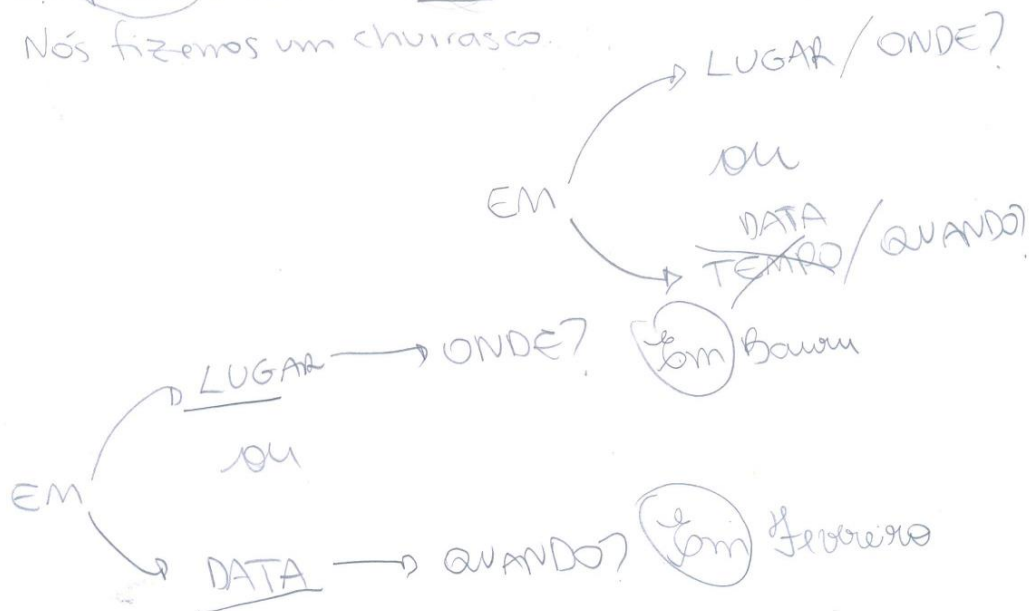 Nós fizemos um churrasco.
LUGAR / ONDE?
ou
EM
DATA
TEMPO / QUANDO?
LUGAR → ONDE? Em Bauru
ou
EM
DATA → QUANDO? Em Fevereiro